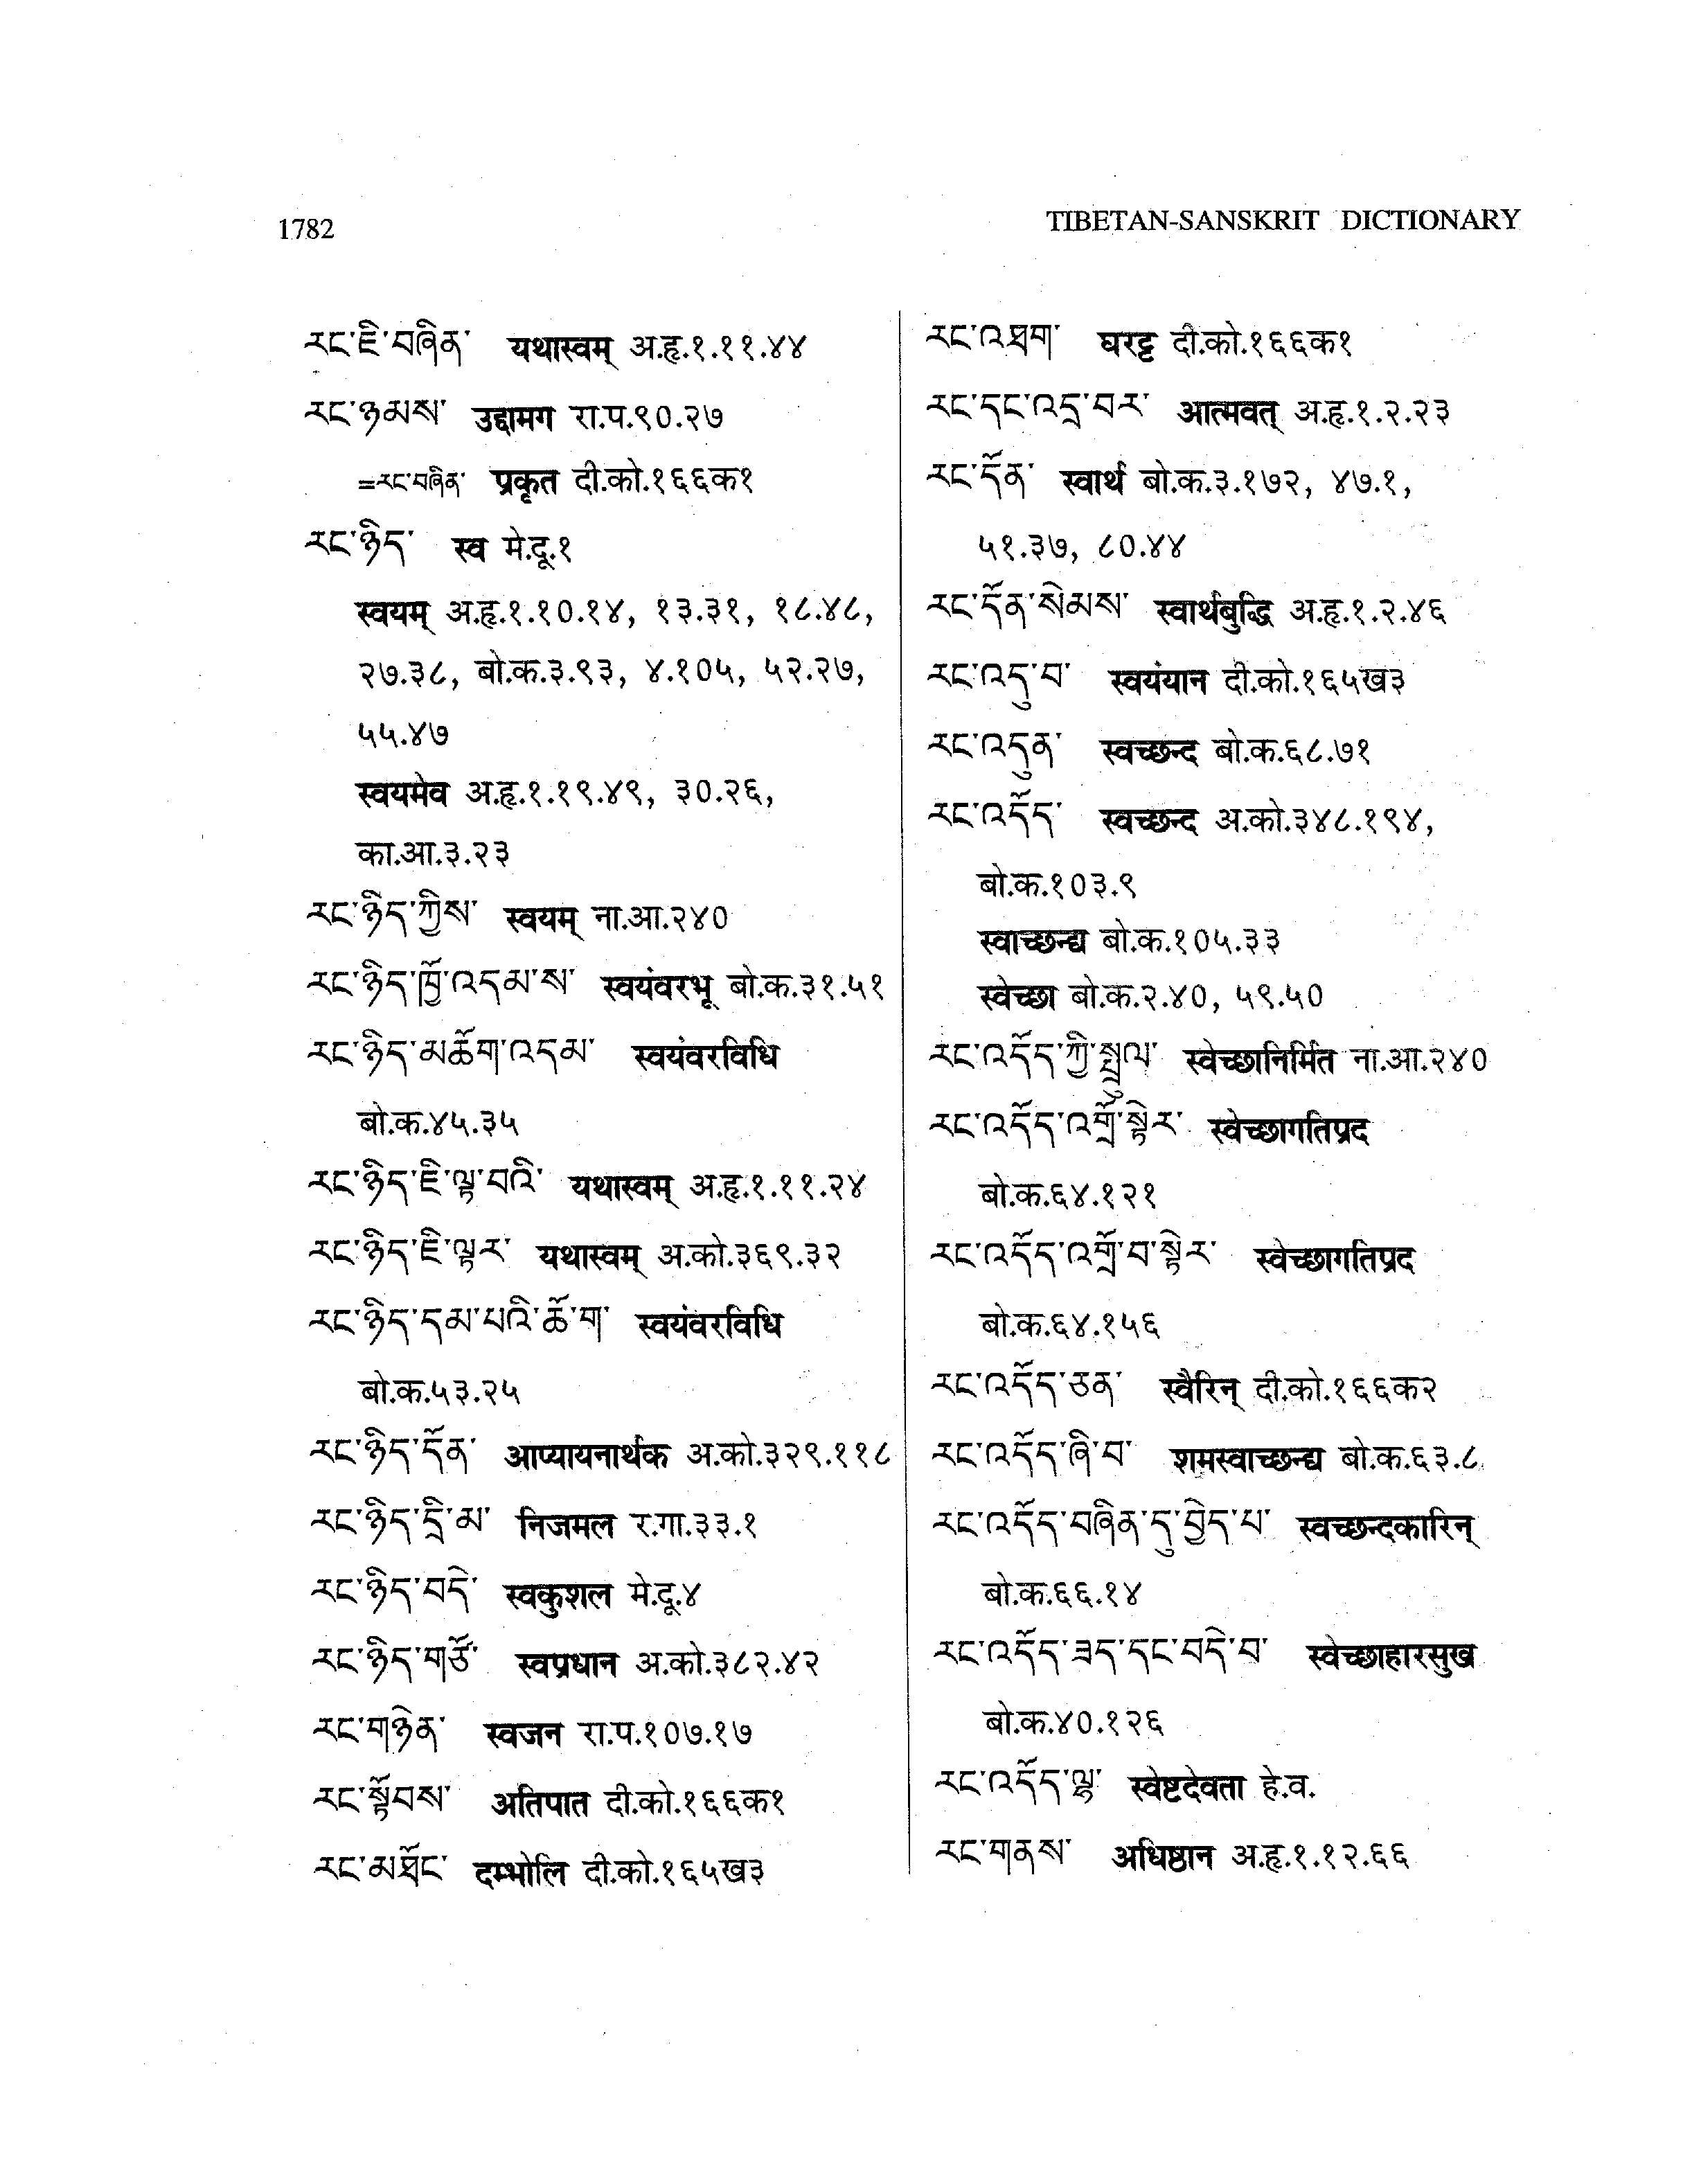 1782
TIBETAN-SANSKRIT DICTIONARY
རང་ཇི་བཞིན་ यथास्वम् अ.हृ.१.११.४४
རང་ཉམས་ उद्दामग रा.प.९०.२७
=རང་བཞིན་ प्रकृत दी.को.१६६क१
རང་ཉིད་ स्व मे.दू.१
स्वयम् अ.हृ.१.१०.१४, १३.३१, १८.४८,
२७.३८, बो.क.३.९३, ४.१०५, ५२.२७,
५५.४७
स्वयमेव अ.हृ.१.१९.४९, ३०.२६,
का.आ.३.२३
རང་ཉིད་ཀྱིས་ स्वयम् ना.आ.२४०
རང་ཉིད་ཁྱོ་འདམ་ས་ स्वयंवरभू बो.क.३१.५१
རང་ཉིད་མཆོག་འདམ་ स्वयंवरविधि
बो.क.४५.३५
རང་ཉིད་ཇི་ལྟ་བའི་ यथास्वम् अ.हृ.१.११.२४
རང་ཉིད་ཇི་ལྟར་ यथास्वम् अ.को.३६९.३२
རང་ཉིད་དམ་པའི་ཆོ་ག་ स्वयंवरविधि
बो.क.५३.२५
རང་ཉིད་དོན་ आप्यायनार्थक अ.को.३२९.११८
རང་ཉིད་དྲི་མ་ निजमल र.गा.३३.१
རང་ཉིད་བདེ་ स्वकुशल मे.दू.४
རང་ཉིད་གཙོ་ स्वप्रधान अ.को.३८२.४२
རང་གཉེན་ स्वजन रा.प.१०७.१७
རང་སྟོབས་ अतिपात दी.को.१६६क१
རང་མཐོང་ दम्भोलि दी.को.१६५ख३
རང་འཐག་ घरट्ट दी.को.१६६क१
རང་དང་འདྲ་བར་ आत्मवत् अ.हृ.१.२.२३
རང་དོན་ स्वार्थ बो.क.३.१७२, ४७.१,
५१.३७, ८०.४४
རང་དོན་སེམས་ स्वार्थबुद्धि अ.हृ.१.२.४६
རང་འདུ་བ་ स्वयंयान दी.को.१६५ख३
རང་འདུན་ स्वच्छन्द बो.क.६८.७१
རང་འདོད་ स्वच्छन्द अ.को.३४८.१९४,
बो.क.१०३.९
स्वाच्छन्द्य बो.क.१०५.३३
स्वेच्छा बो.क.२.४०, ५९.५०
རང་འདོད་ཀྱི་སྤྲུལ་ स्वेच्छानिर्मित ना.आ.२४०
རང་འདོད་འགྲོ་སྟེར་ स्वेच्छागतिप्रद
बो.क.६४.१२१
རང་འདོད་འགྲོ་བ་སྟེར་ स्वेच्छागतिप्रद
बो.क.६४.१५६
རང་འདོད་ཅན་ स्वैरिन् दी.को.१६६क२
རང་འདོད་ཞི་བ་ शमस्वाच्छन्द्य बो.क.६३.८
རང་འདོད་བཞིན་དུ་བྱེད་པ་ स्वच्छन्दकारिन्
बो.क.६६.१४
རང་འདོད་ཟད་དང་བདེ་བ་ स्वेच्छाहारसुख
बो.क.४०.१२६
རང་འདོད་ལྷ་ स्वेष्टदेवता हे.व.
རང་གནས་ अधिष्ठान अ.हृ.१.१२.६६